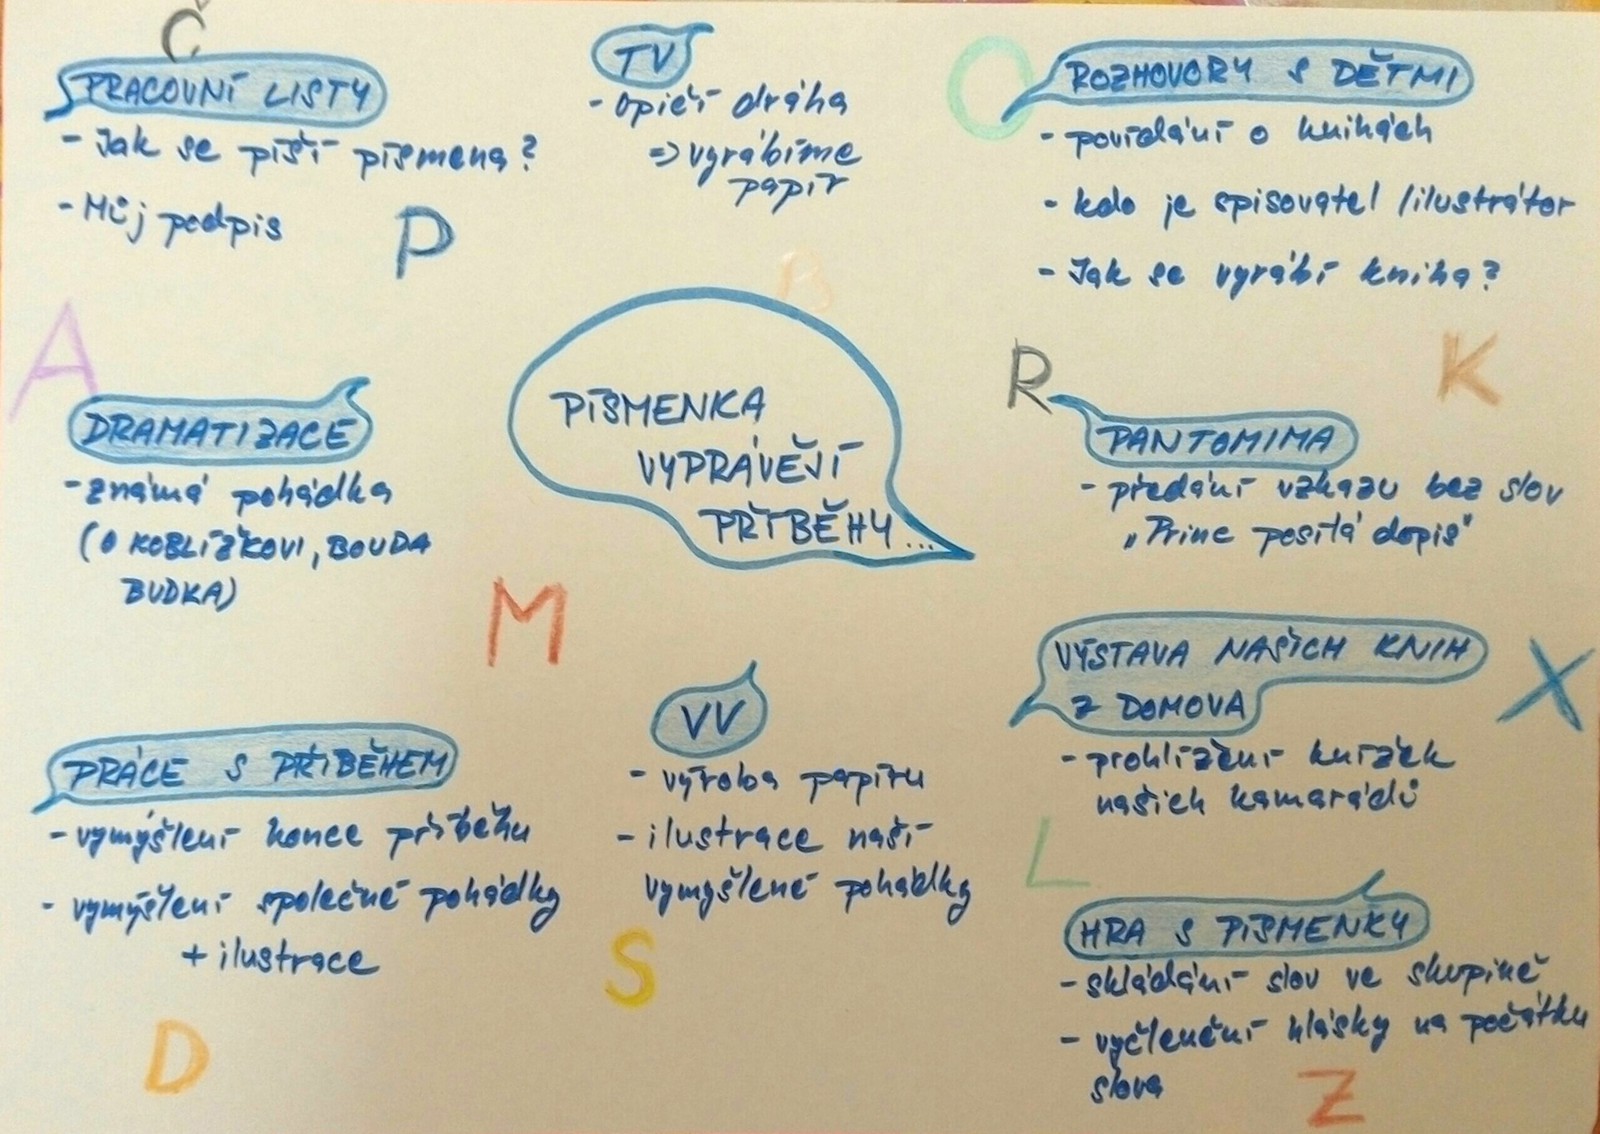 Č
PRACOVNÍ LISTY
- Jak se píší písmena?
- Můj podpis
P
TV
- opičí dráha
=> vyrábíme
papír
O
ROZHOVORY S DĚTMI
- povídání o knihách
- kdo je spisovatel / ilustrátor
- Jak se vyrábí kniha?
B
A
R
K
PÍSMENKA
VYPRÁVĚJÍ
PŘÍBĚHY...
DRAMATIZACE
- známá pohádka
(O KOBLÍŽKOVI, BOUDA
BUDKA)
PANTOMIMA
- předání vzkazu bez slov
„Princ posílá dopis"
M
VÝSTAVA NAŠICH KNIH
Z DOMOVA
- prohlížení knížek
našich kamarádů
X
PRÁCE S PŘÍBĚHEM
- vymýšlení konce příběhu
- vymýšlení společné pohádky
+ ilustrace
VV
- výroba papíru
- ilustrace naší
vymyšlené pohádky
S
L
D
HRA S PÍSMENKY
- skládání slov ve skupině
- vyčlenění hlásky na počátku
slova
Z